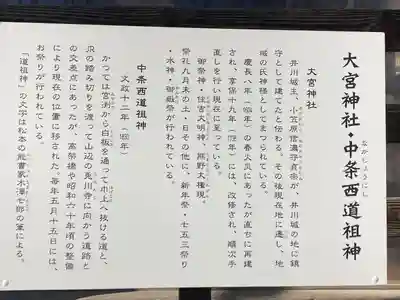 大宮神社・中条西道祖神
なかじょうにし
大宮神社
井川城主、小笠原信濃守貞宗が、井川城の地に鎮
守として建てたと伝わる。その後現在地に遷し、地
域の氏神様としてまつられている。
慶長八年の春火災にあったが直ちに再建
され、享保十九年には、改修され、順次手
直しを行い現在に至っている。
御祭神・住吉大明神、熊野大権現。
祭礼九月末の土・日その他に、新年祭・七五三祭り
・水神・御嶽祭が行われている。
中条西道祖神
文政十二年
かつては宮渕から白板を通って市上へ抜ける道と、
JRの踏み切りを渡って山辺の兎川寺に向かう道路と
の交差点にあったが、高架橋や昭和六十年頃の整備
により現在の位置に移された。毎年五月十五日には、
お祭りが行われている。
「道祖神」の文字は松本の能書家木澤七郎の筆による。